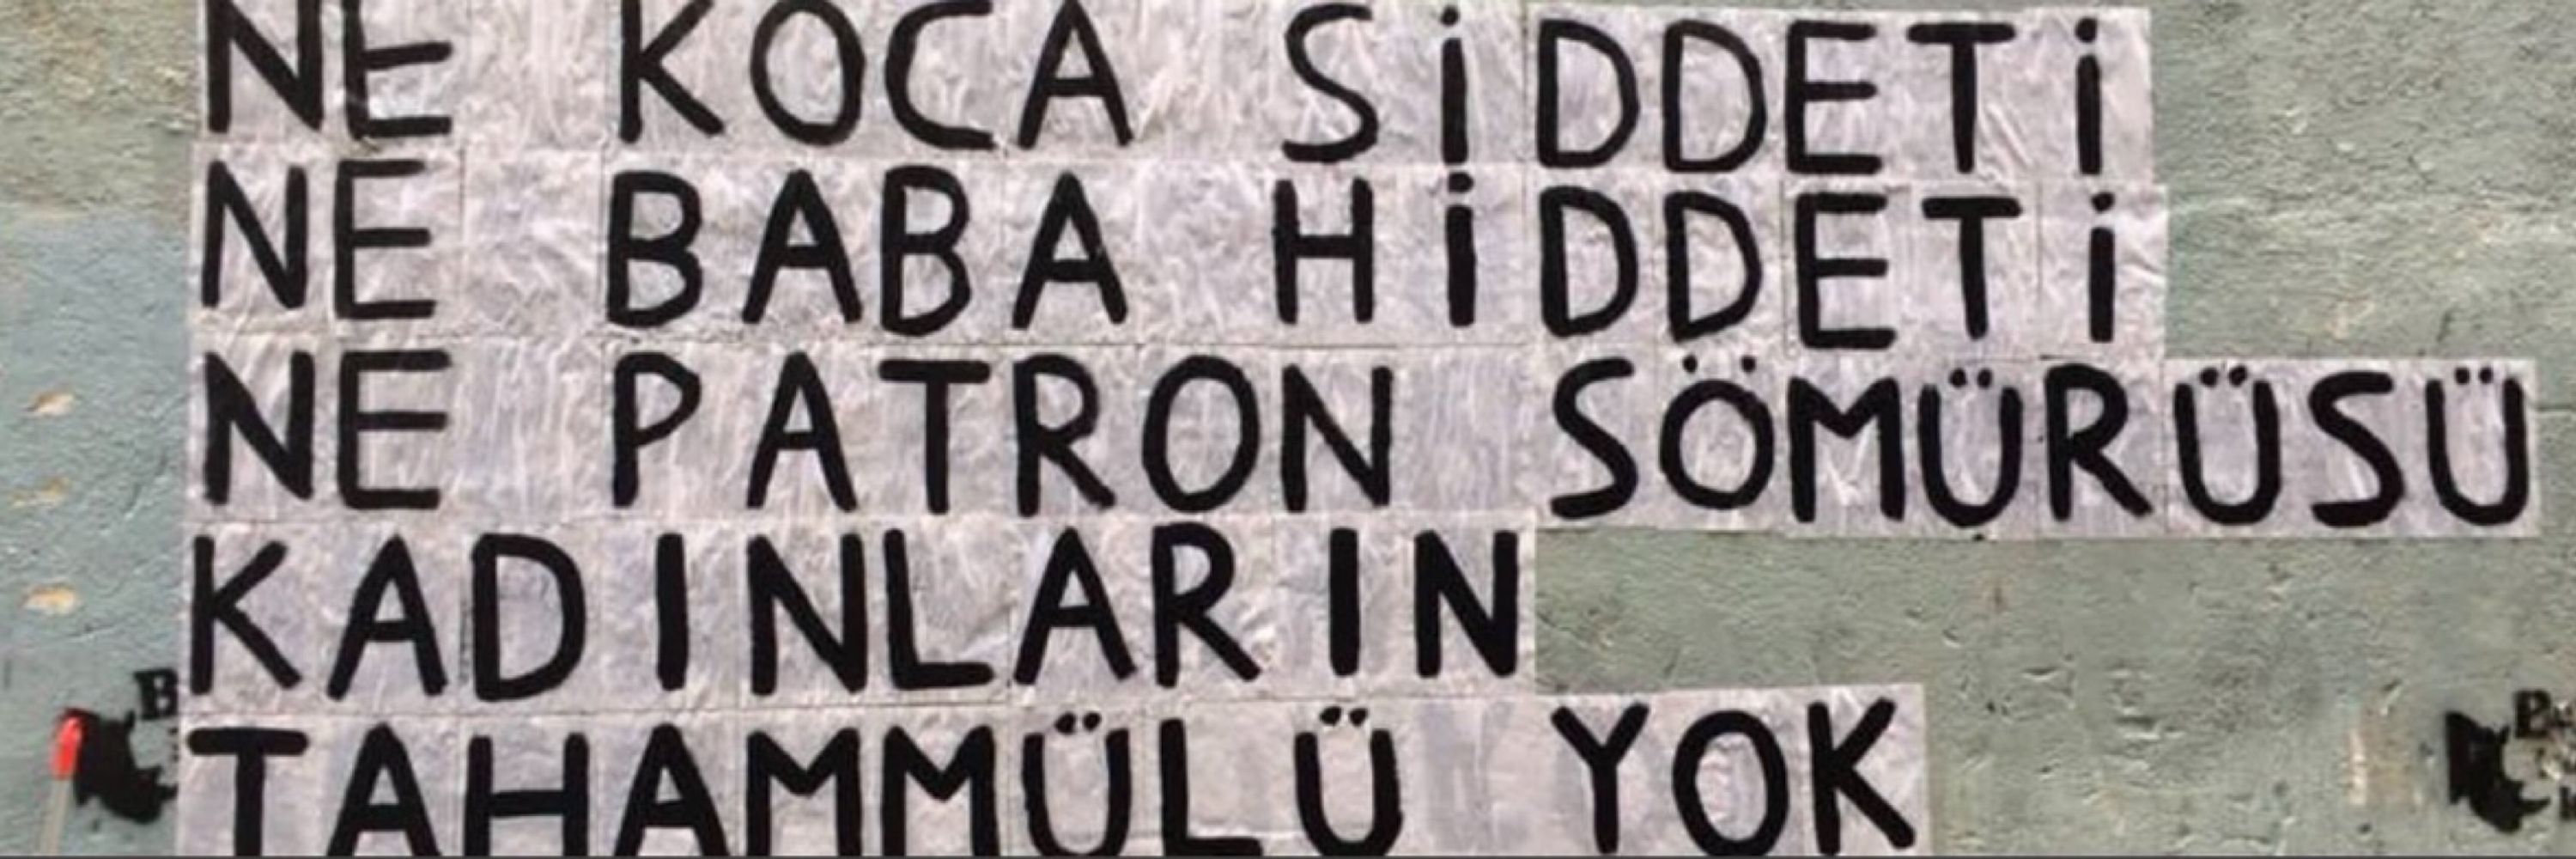 NE KOCA SİDDETİ
NE BABA HİDDETİ
NE PATRON SÖMÜRÜSÜ
KADINLARIN
TAHAMMÜLÜ YOK